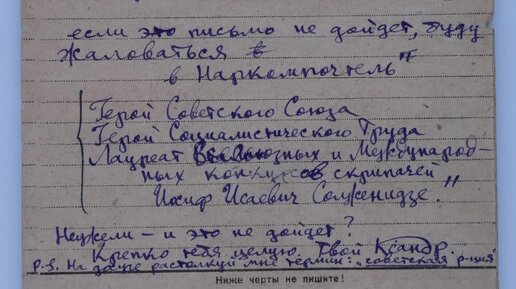 если это письмо не дойдет, буду
жаловаться
в Наркомпочтель"
Герой Советского Союза
Герой Социалистического Труда
Лауреат Всесоюзных и Международ-
ных конкурсов скрипачей
Иосиф Исаевич Солженидзе."
Неужели – и это не дойдет?
Крепко тебя целую. Твой Ксандр.
P.S. На досуге растолкуй мне термин: "советская р-ция"
Ниже черты не пишите!